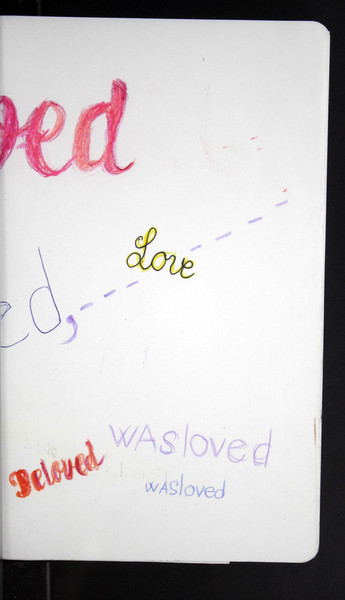 ved
Love
ed,
WAsloved
Beloved
WAsloved